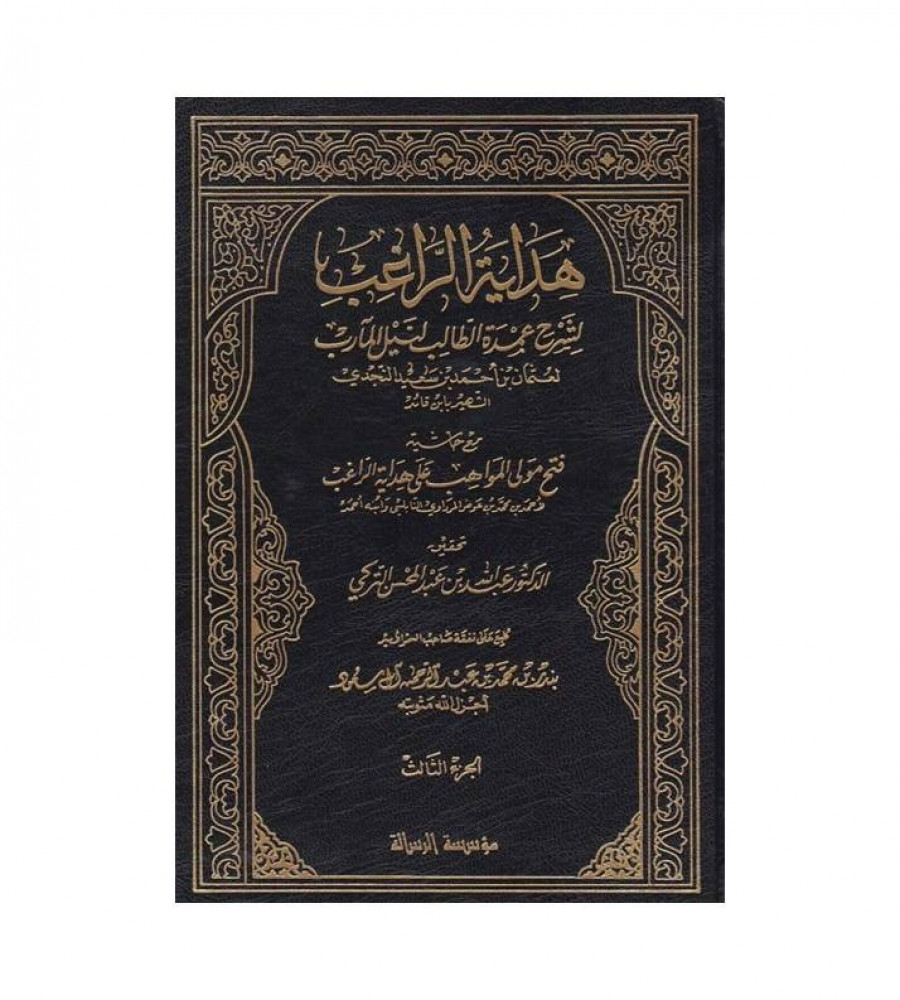 هِدَايَةُ الرَّاغِبِ
لِشَرْحِ عُمْدَةِ الطَّالِبِ لِنَيْلِ المَآرِبِ
لعثمان بن أحمد بن سعيد النجدي
الشهير بابن قائد
مع حاشية
فتح مولى المواهب على هداية الراغب
لأحمد بن محمد بن عوض المرداوي النابلسي وابنه أحمد
تحقيق
الدكتور عبد الله بن عبد المحسن التركي
طبع على نفقة صاحب السمو الأمير
بندر بن محمد بن عبد الرحمن آل سعود
أجزل الله مثوبته
الجزء الثالث
مؤسسة الرسالة